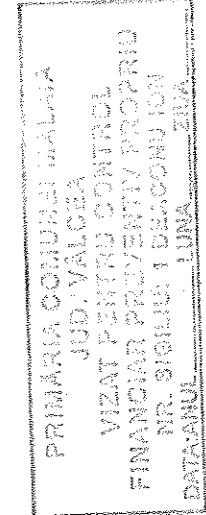 PRIMĂRIA COMUNEI MALAIA
JUD. VÂLCEA
VIZAT PENTRU CONTROL
FINANCIAR PREVENTIV PROPRIU
NR. SIGILIU 1 DIACONU ION
DATA: ANUL LUNA ZIUA